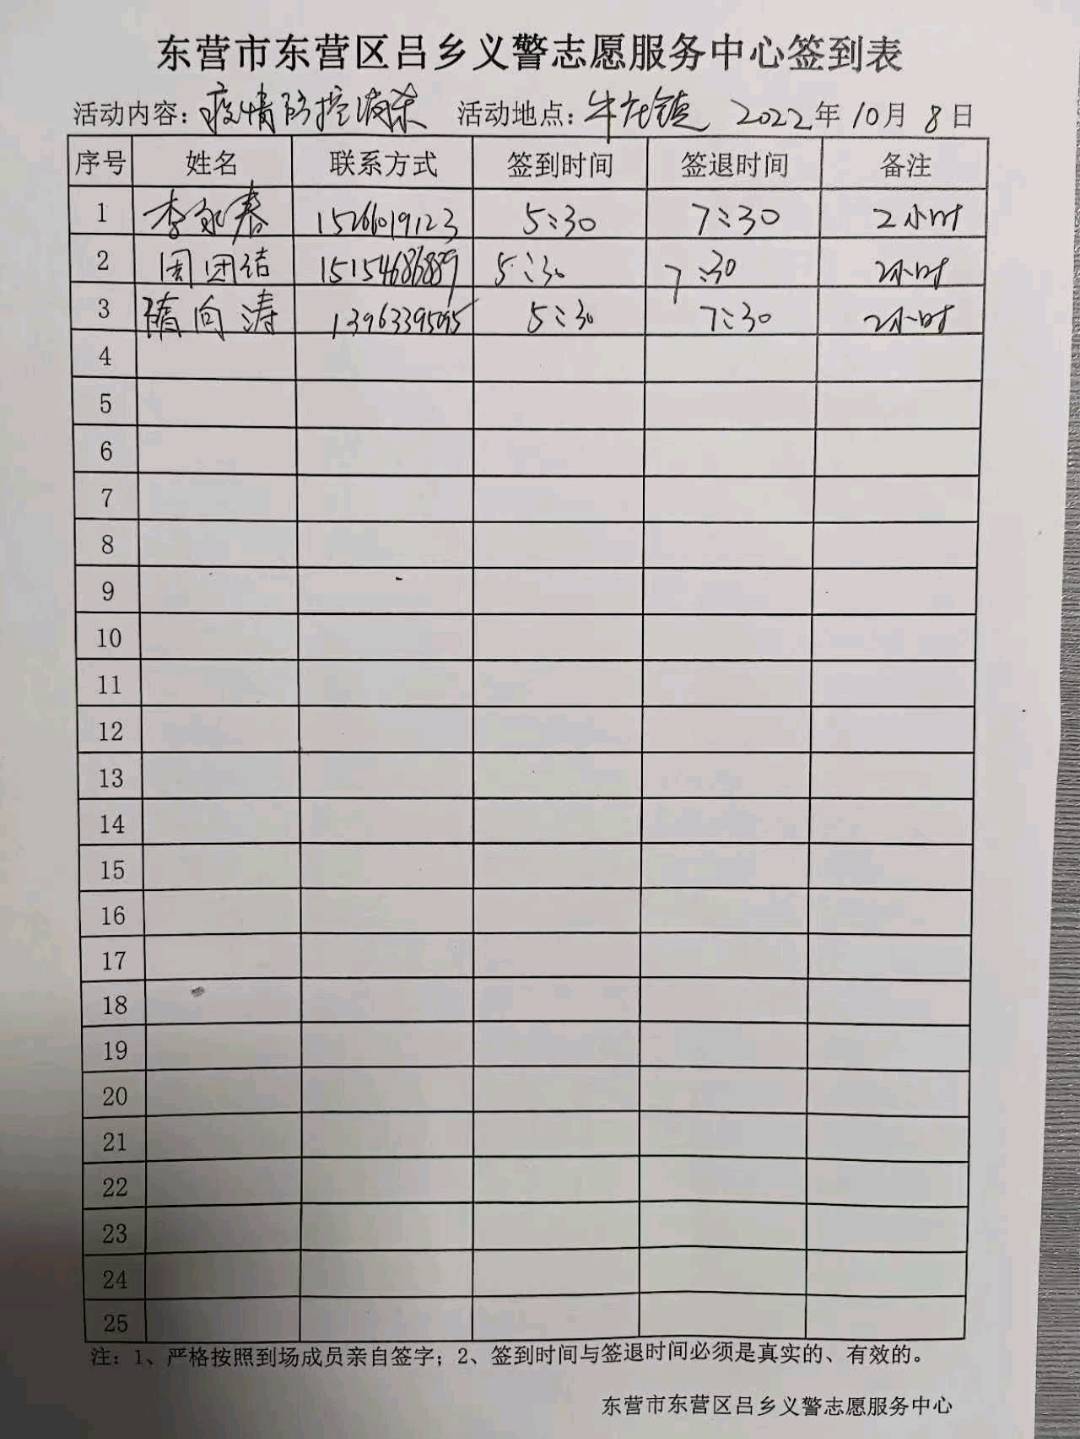 东营市东营区吕乡义警志愿服务中心签到表
活动内容：疫情防控消杀 活动地点：牛庄镇 2022年10月8日
序号 姓名 联系方式 签到时间 签退时间 备注
1 李永春 15266019123 5:30 7:30 2小时
2 周团结 15154686889 5:30 7:30 2小时
3 隋向涛 13963395095 5:30 7:30 2小时
4
5
6
7
8
9
10
11
12
13
14
15
16
17
18
19
20
21
22
23
24
25
注：1、严格按照到场成员亲自签字；2、签到时间与签退时间必须是真实的、有效的。
东营市东营区吕乡义警志愿服务中心